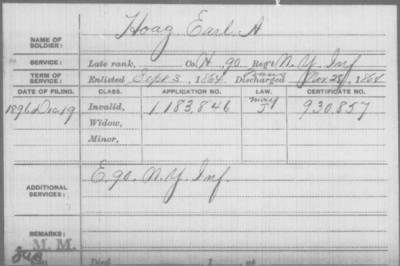 NAME OF SOLDIER: Hoag, Earl A
SERVICE: Late rank, Co. H, 90 Reg't N.Y. Inf
TERM OF SERVICE: Enlisted Sept 3, 1864 Discharged 186
DATE OF FILING. CLASS. APPLICATION NO. LAW. CERTIFICATE NO.
1896 Dec 19 Invalid, 1,183,846 930,857
Widow,
Minor,
ADDITIONAL SERVICES: E. 90. N.Y. Inf.
REMARKS:
M. M.
Died at